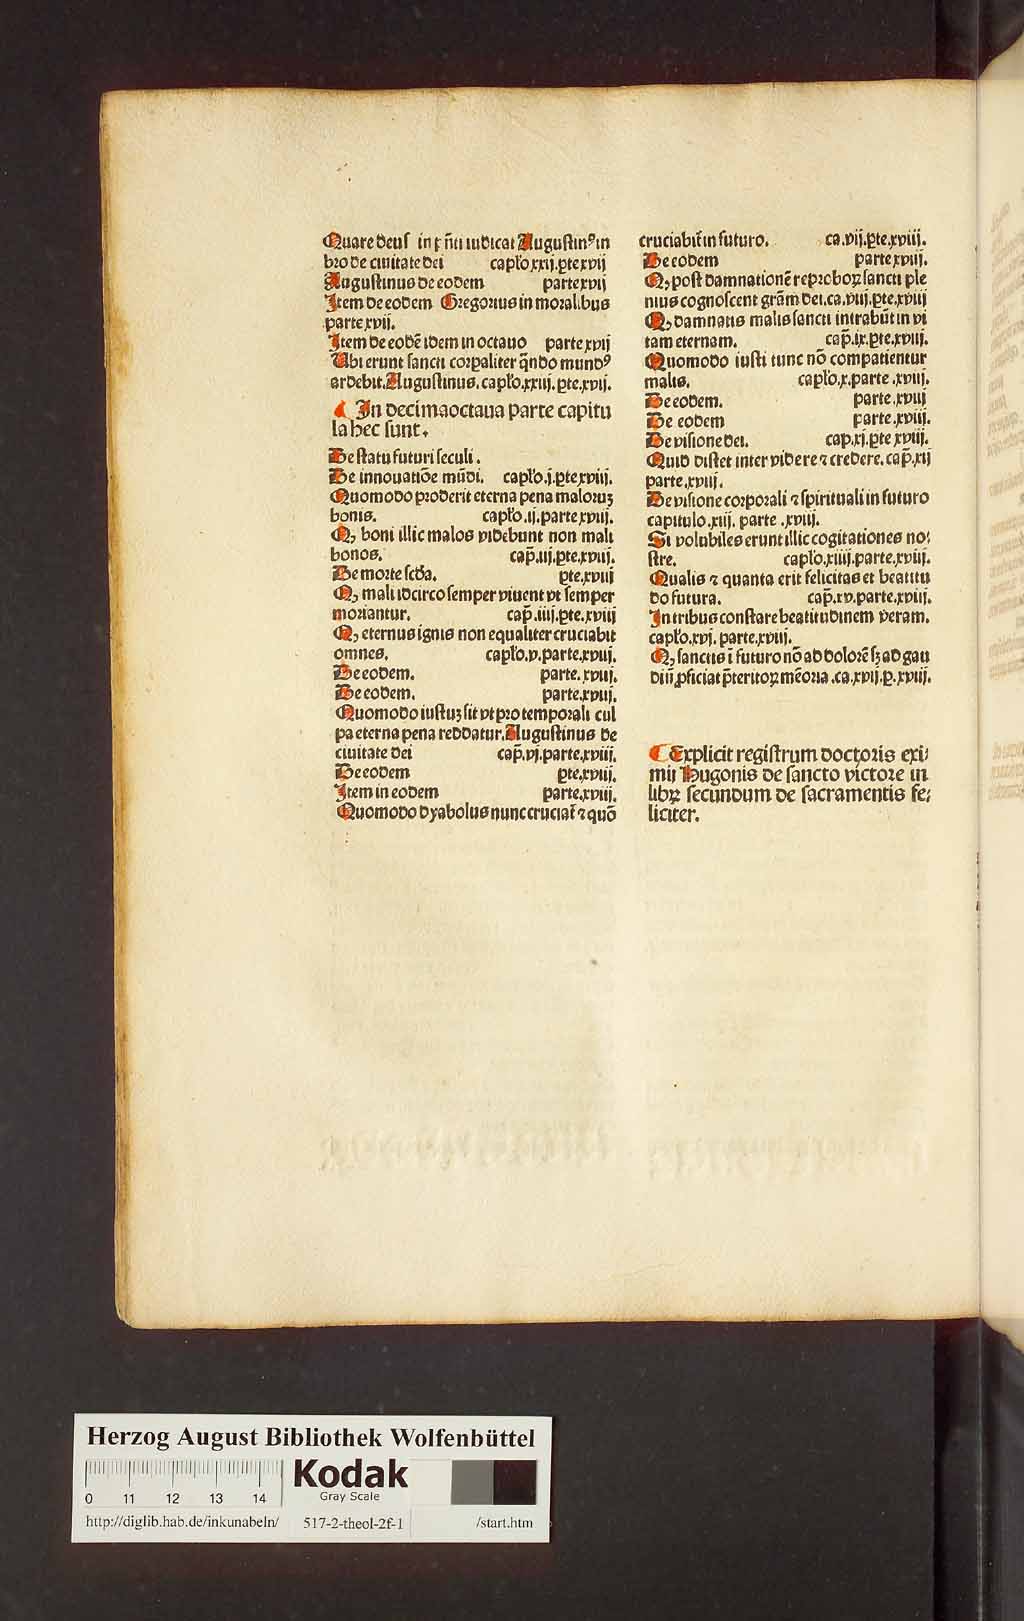 Quare deus in p̄n̄ti iudicat Augustinꝰ in
bro de ciuitate dei capl̓o.xxij.ꝑte xvij
Augustinus de eodem parte xvij
Item de eodem Gregorius in moralibus
parte xvij.
Item de eodē idem in octauo parte xvij
Ubi erunt sancti corꝑaliter qn̄do mundꝰ
ardebit. Augustinus. capl̓o.xxiij.ꝑte.xvij.
¶ In decimaoctaua parte capitu
la hec sunt.
De statu futuri seculi.
De innouatiōe mūdi. capl̓o.j.ꝑte xviij.
Quomodo proderit eterna pena maloruꝫ
bonis. capl̓o.ij.parte xviij.
Qꝫ boni illic malos videbunt non mali
bonos. cap̄.iij.ꝑte.xviij.
De morte scd̓a. ꝑte.xviij
Qꝫ mali idcirco semper viuent vt semper
moriantur. cap̄.iiij.ꝑte.xviij
Qꝫ eternus ignis non equaliter cruciabit
omnes. capl̓o.v.parte.xviij.
De eodem. parte.xviij.
De eodem. parte.xviij.
Quomodo iustuꝫ sit vt pro temporali cul
pa eterna pena reddatur. Augustinus de
ciuitate dei cap̄.vj.parte.xviij.
De eodem ꝑte.xviij.
Item in eodem parte.xviij.
Quomodo dyabolus nunc cruciat̄ ⁊ quō
cruciabit̄ in futuro. ca.vij.ꝑte.xviij.
De eodem parte xviij.
Qꝫ post damnationē reproboꝝ sancti ple
nius cognoscent gr̄am dei. ca.viij.ꝑte.xviij
Qꝫ damnatis malis sancti intrabūt in vi
tam eternam. cap̄.ix.ꝑte.xviij.
Quomodo iusti tunc nō compatientur
malis. capl̓o.x.parte.xviij.
De eodem. parte.xviij
De eodem parte.xviij.
De visione dei. cap.xj.ꝑte xviij.
Quid distet inter videre ⁊ credere. cap̄.xij
parte.xviij.
De visione corporali ⁊ spirituali in futuro
capitulo.xiij. parte.xviij.
Si volubiles erunt illic cogitationes no⸗
stre. capl̓o.xiiij.parte.xviij.
Qualis ⁊ quanta erit felicitas et beatitu
do futura. cap̄.xv.parte.xviij.
In tribus constare beatitudinem veram.
capl̓o.xvj. parte.xviij.
Qꝫ sanctis ī futuro nō ad dolorē sꝫ ad gau
diū ꝓficiat p̄teritoꝝ mēoria.ca.xvij.ꝑ.xviij.
¶ Explicit registrum doctoris exi⸗
mij Hugonis de sancto victore in
libꝝ secundum de sacramentis fe⸗
liciter.
Herzog August Bibliothek Wolfenbüttel
Kodak
Gray Scale
0 11 12 13 14
http://diglib.hab.de/inkunabeln/ 517-2-theol-2f-1 /start.htm